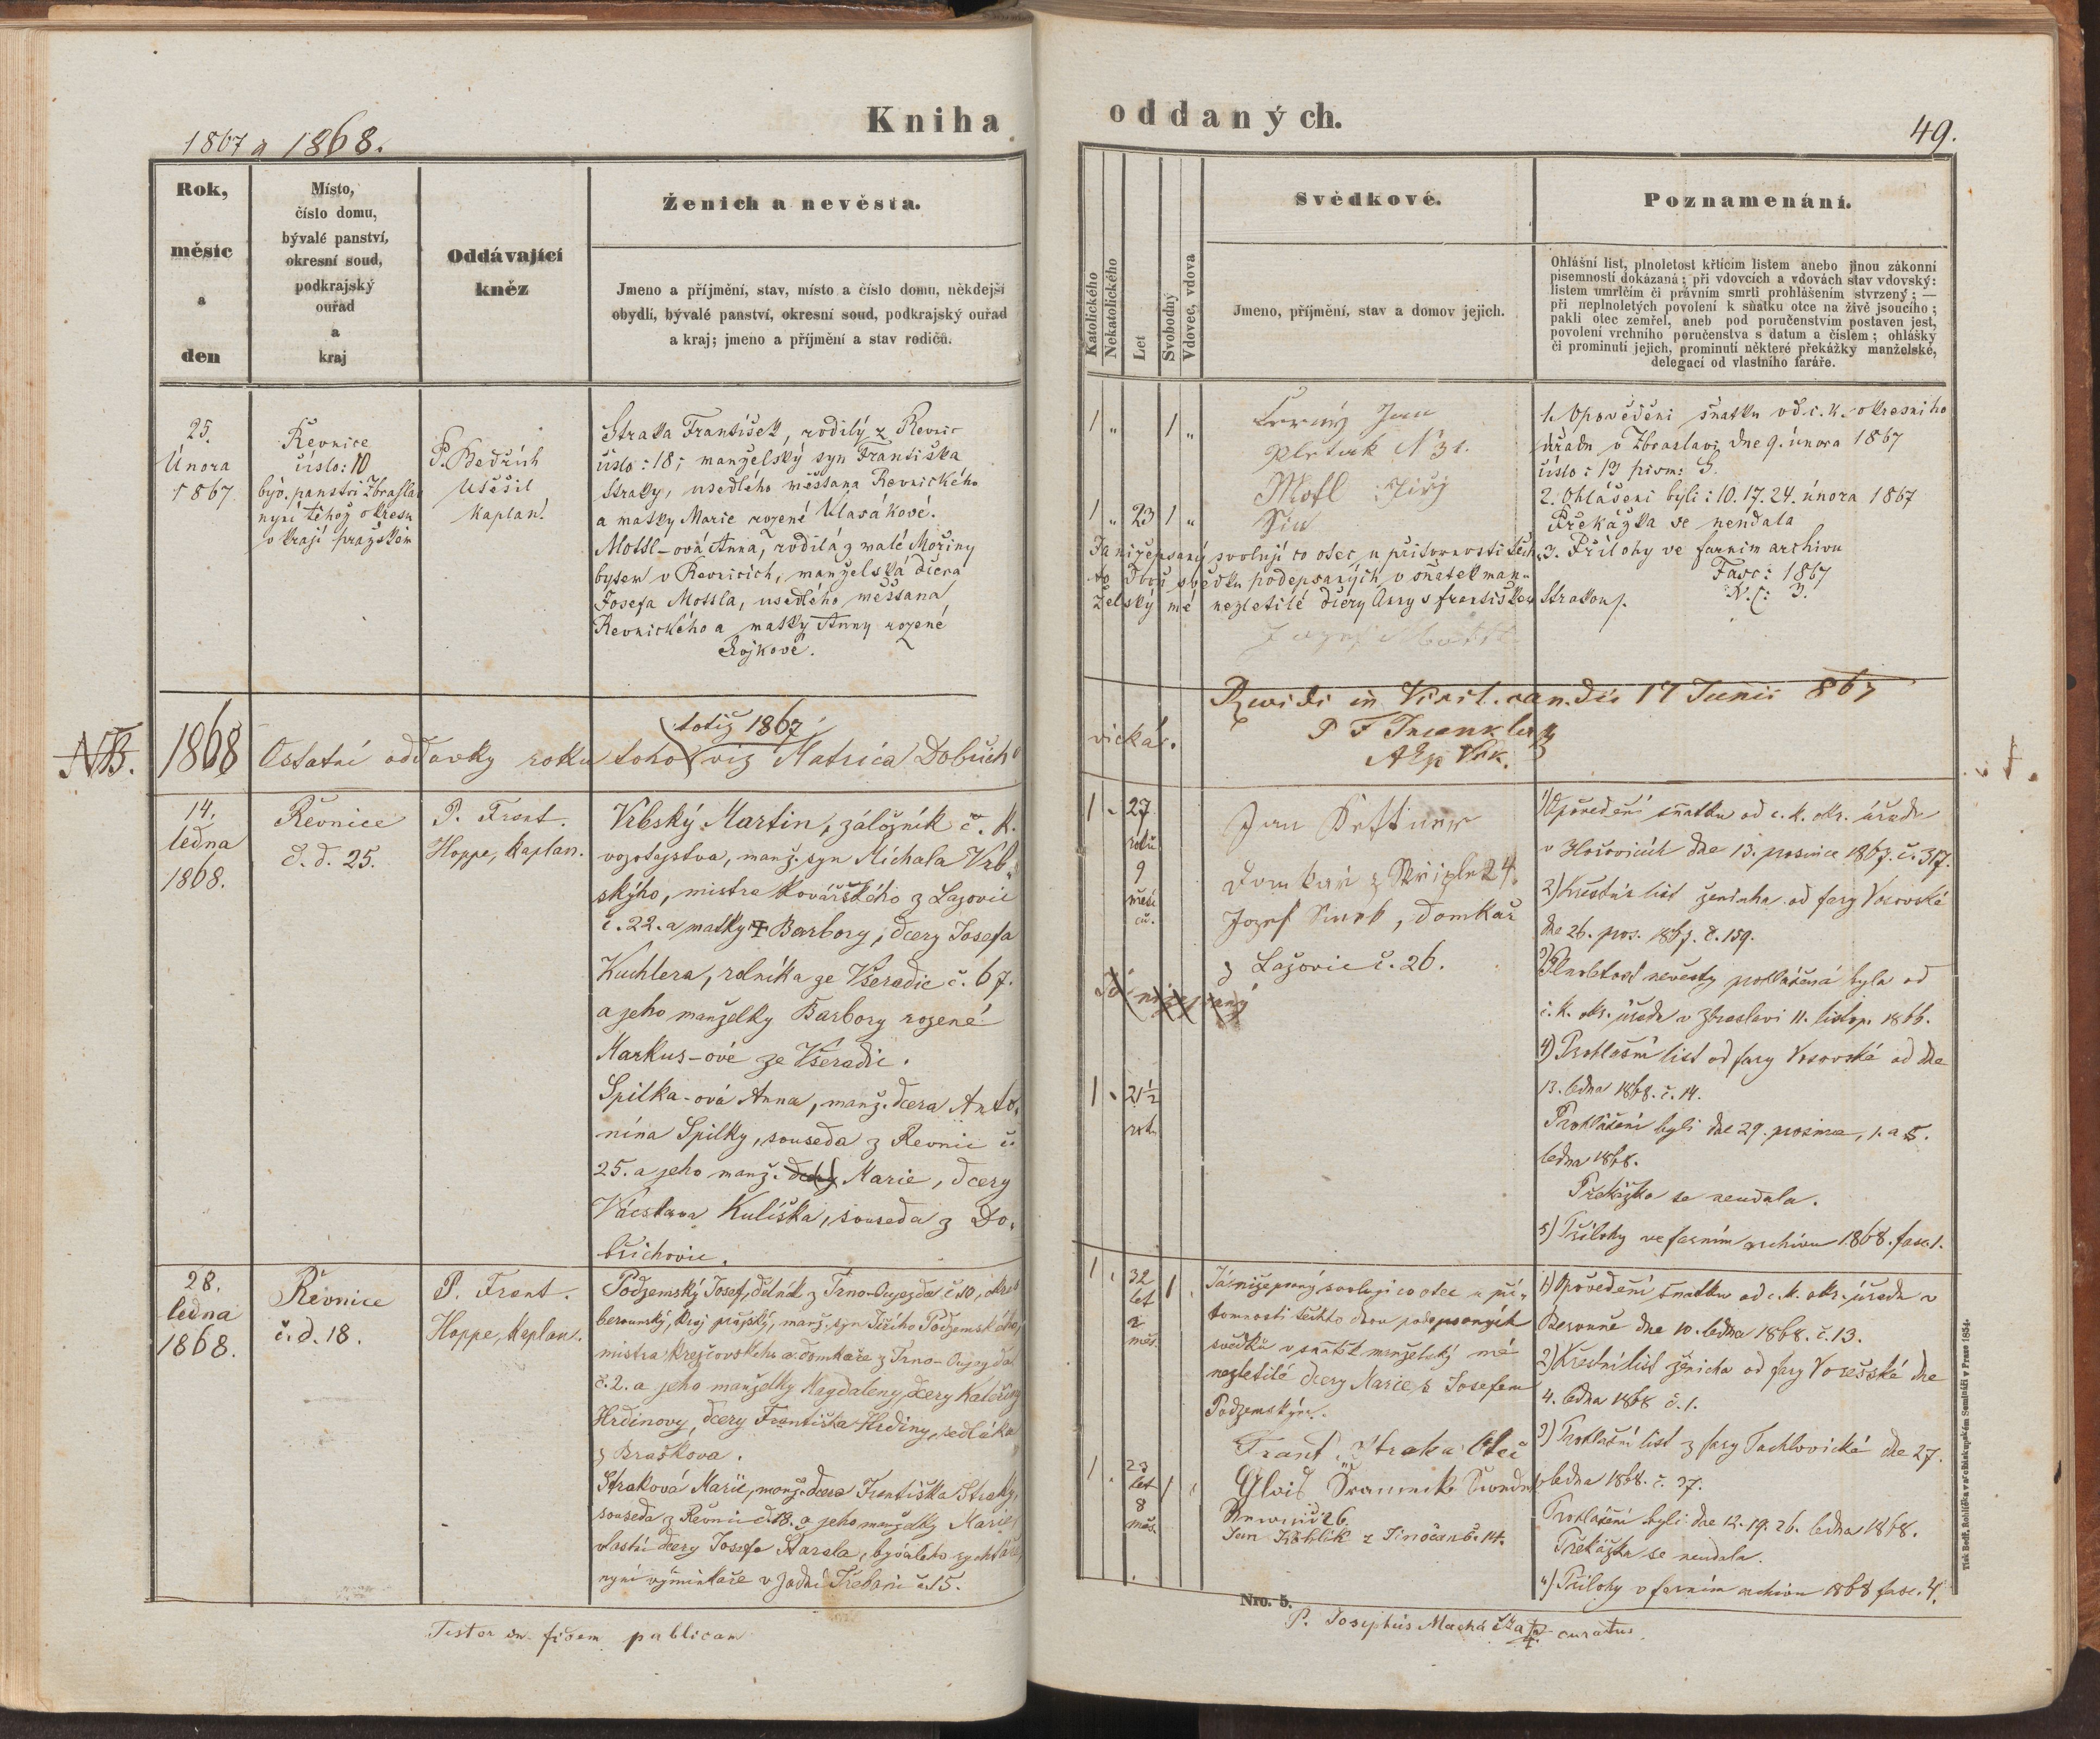 1867 a 1868.
Kniha
oddaných.
49.
Rok,
měsíc
a
den
Místo,
číslo domu,
bývalé panství,
okresní soud,
podkrajský
ouřad
a
kraj
Oddávající
kněz
Ženich a nevěsta.
Jmeno a příjmění, stav, místo a číslo domu, někdejší
obydlí, bývalé panství, okresní soud, podkrajský ouřad
a kraj; jmeno a příjmění a stav rodičů.
Katolického
Nekatolického
Let
Svobodný
Vdovec, vdova
Svědkové.
Jmeno, příjmění, stav a domov jejich.
Poznamenání.
Ohlášní list, plnoletost křtícím listem anebo jinou zákonní
písemností dokázaná; při vdovcích a vdovách stav vdovský:
listem umrlčím či právním smrti prohlášením stvrzený; —
při neplnoletých povolení k sňatku otce na živě jsoucího;
pakli otec zemřel, aneb pod poručenstvím postaven jest,
povolení vrchního poručenstva s datum a číslem; ohlášky
či prominutí jejich, prominutí některé překážky manželské,
delegací od vlastního faráře.
25.
Února
1867
Řevnice
číslo: 10
býv. panství Zbraslav
nyní téhož okresu
v kraji pražskem
P. Bedřich
Utěšil
kaplan.
Straka František, rodilý z Revnic
číslo: 18; manželský syn Františka
Straky, usedlého měšťana Revnického
a matky Marie rozené Vlasákové.
Mottl-ová Anna, rodilá z malé Mořiny
bytem v Revnicích, manželská dcera
Josefa Mottla, usedlého měšťana
Revnického a matky Anny rozené
Rojkové.
1 „ 1 „
Černý Jan
N 31.
Mottl Jiří
1 „ 23 1 „
Já nížepsaný svoluji co otec, u přítomnosti těch-
to dvou svědků podepsaných v sňatek man-
želský mé nezletilé dcery Anny s Františkem Strakou.
Josef Mottl
1. Opovědění sňatku od c. k. okresního
úřadu v Zbraslavi dne 9. února 1867
číslo: 13 písm: S.
2. Ohlášeni byli: 10. 17. 24. února 1867
Překážka se nendala
3. Přílohy ve farním archivu
Fasc: 1867
N. C: 3.
Revidi in Visit. can. die 17 Junii 867
NB.
1868
Ostatní oddavky roku toho (totiž 1867) viz Matrica Dobřicho
vická.
14.
ledna
1868.
Řevnice
č. d. 25.
P. Frant.
Hoppe, kaplan.
Vrbský Martin, záložník c. k.
vozotajstva, manž. syn Michala Vrb-
ského, mistra kovářského z Lazovic
č. 22. a matky † Barbory, dcery Josefa
Kuchlera, rolníka ze Všeradic č. 67.
a jeho manželky Barbory rozené
Markus-ové ze Všeradic.
Spilka-ová Anna, manž. dcera Anto-
nína Spilky, souseda z Revnic č.
25. a jeho manž. Marie, dcery
Václava Kulíška, souseda z Do-
břichovic.
1 „ 27
roků
9
měsí
ců.
Jan
Domkář z Skřiple 24.
Jozef, domkář
z Lažovic č. 26.
Já nížepsaný
1 „ 21½
rok
1) Opovědění sňatku od c. k. okr. úřadu
v Hořovicích dne 13. prosince 1867. č. 317.
2) Křestní list ženicha od fary Vosovské
dne 26. pros. 1867. č. 159.
3) Plnoletost nevěsty prohlášená byla od
c. k. okr. úřadu v Zbraslavi 11. listop. 1866.
4) Prohlášní list od fary Vosovské od dne
13. ledna 1868. č. 14.
Prohlášeni byli dne 29. prosince, 1. a 5.
ledna 1868.
Překážka se neudala.
5) Přílohy ve farním archivu 1868. fasc. 1.
28.
ledna
1868.
Řevnice
č. d. 18.
P. Frant.
Hoppe, kaplan.
Podzemský Josef, dělník z Trno-Oujezda č. 10, okres
berounský, kraj pražský, manž. syn Jiřího Podzemského,
mistra krejčovského a domkáře z Trno-Oujezda
č. 2. a jeho manželky Magdaleny, dcery Kateřiny
Hrdinovy, dcery Františka Hrdiny, sedláka
z Braškova.
Straková Marie, manž. dcera Františka Straky,
souseda z Řevnic č. 18. a jeho manželky Marie,
vlastní dcery Josefa, bývalého rychtáře,
nyní výminkáře v Zadní Třebani č. 15.
1 „ 32
let
2
měs.
1 „
Já nížepsaný svoluji co otec u pří-
tomnosti těchto dvou podepsaných
svědků v sňatek manželský mé
nezletilé dcery Marie s Josefem
Podzemským.
Frant. Straka Otec
1 „ 23
let
8
měs.
1 „
26.
Jan z č. 14.
1) Opovědění sňatku od c. k. okr. úřadu v
Berouně dne 10. ledna 1868. č. 13.
2) Křestní list ženicha od fary Vorešské dne
4. ledna 1868 č. 1.
3) Prohlášní list z fary Tachlovické dne 27.
ledna 1868. č. 37.
Prohlášeni byli dne 12. 19. 26. ledna 1868.
Překážka se neudala.
4) Přílohy v farním archivu 1868 fasc. 4.
Testor in fidem publicam
Nro. 5.
P. Josephus Macháček curatus.
Tisk Bedř. Rohlíčka v arcibiskupském Semináři v Praze 1854.